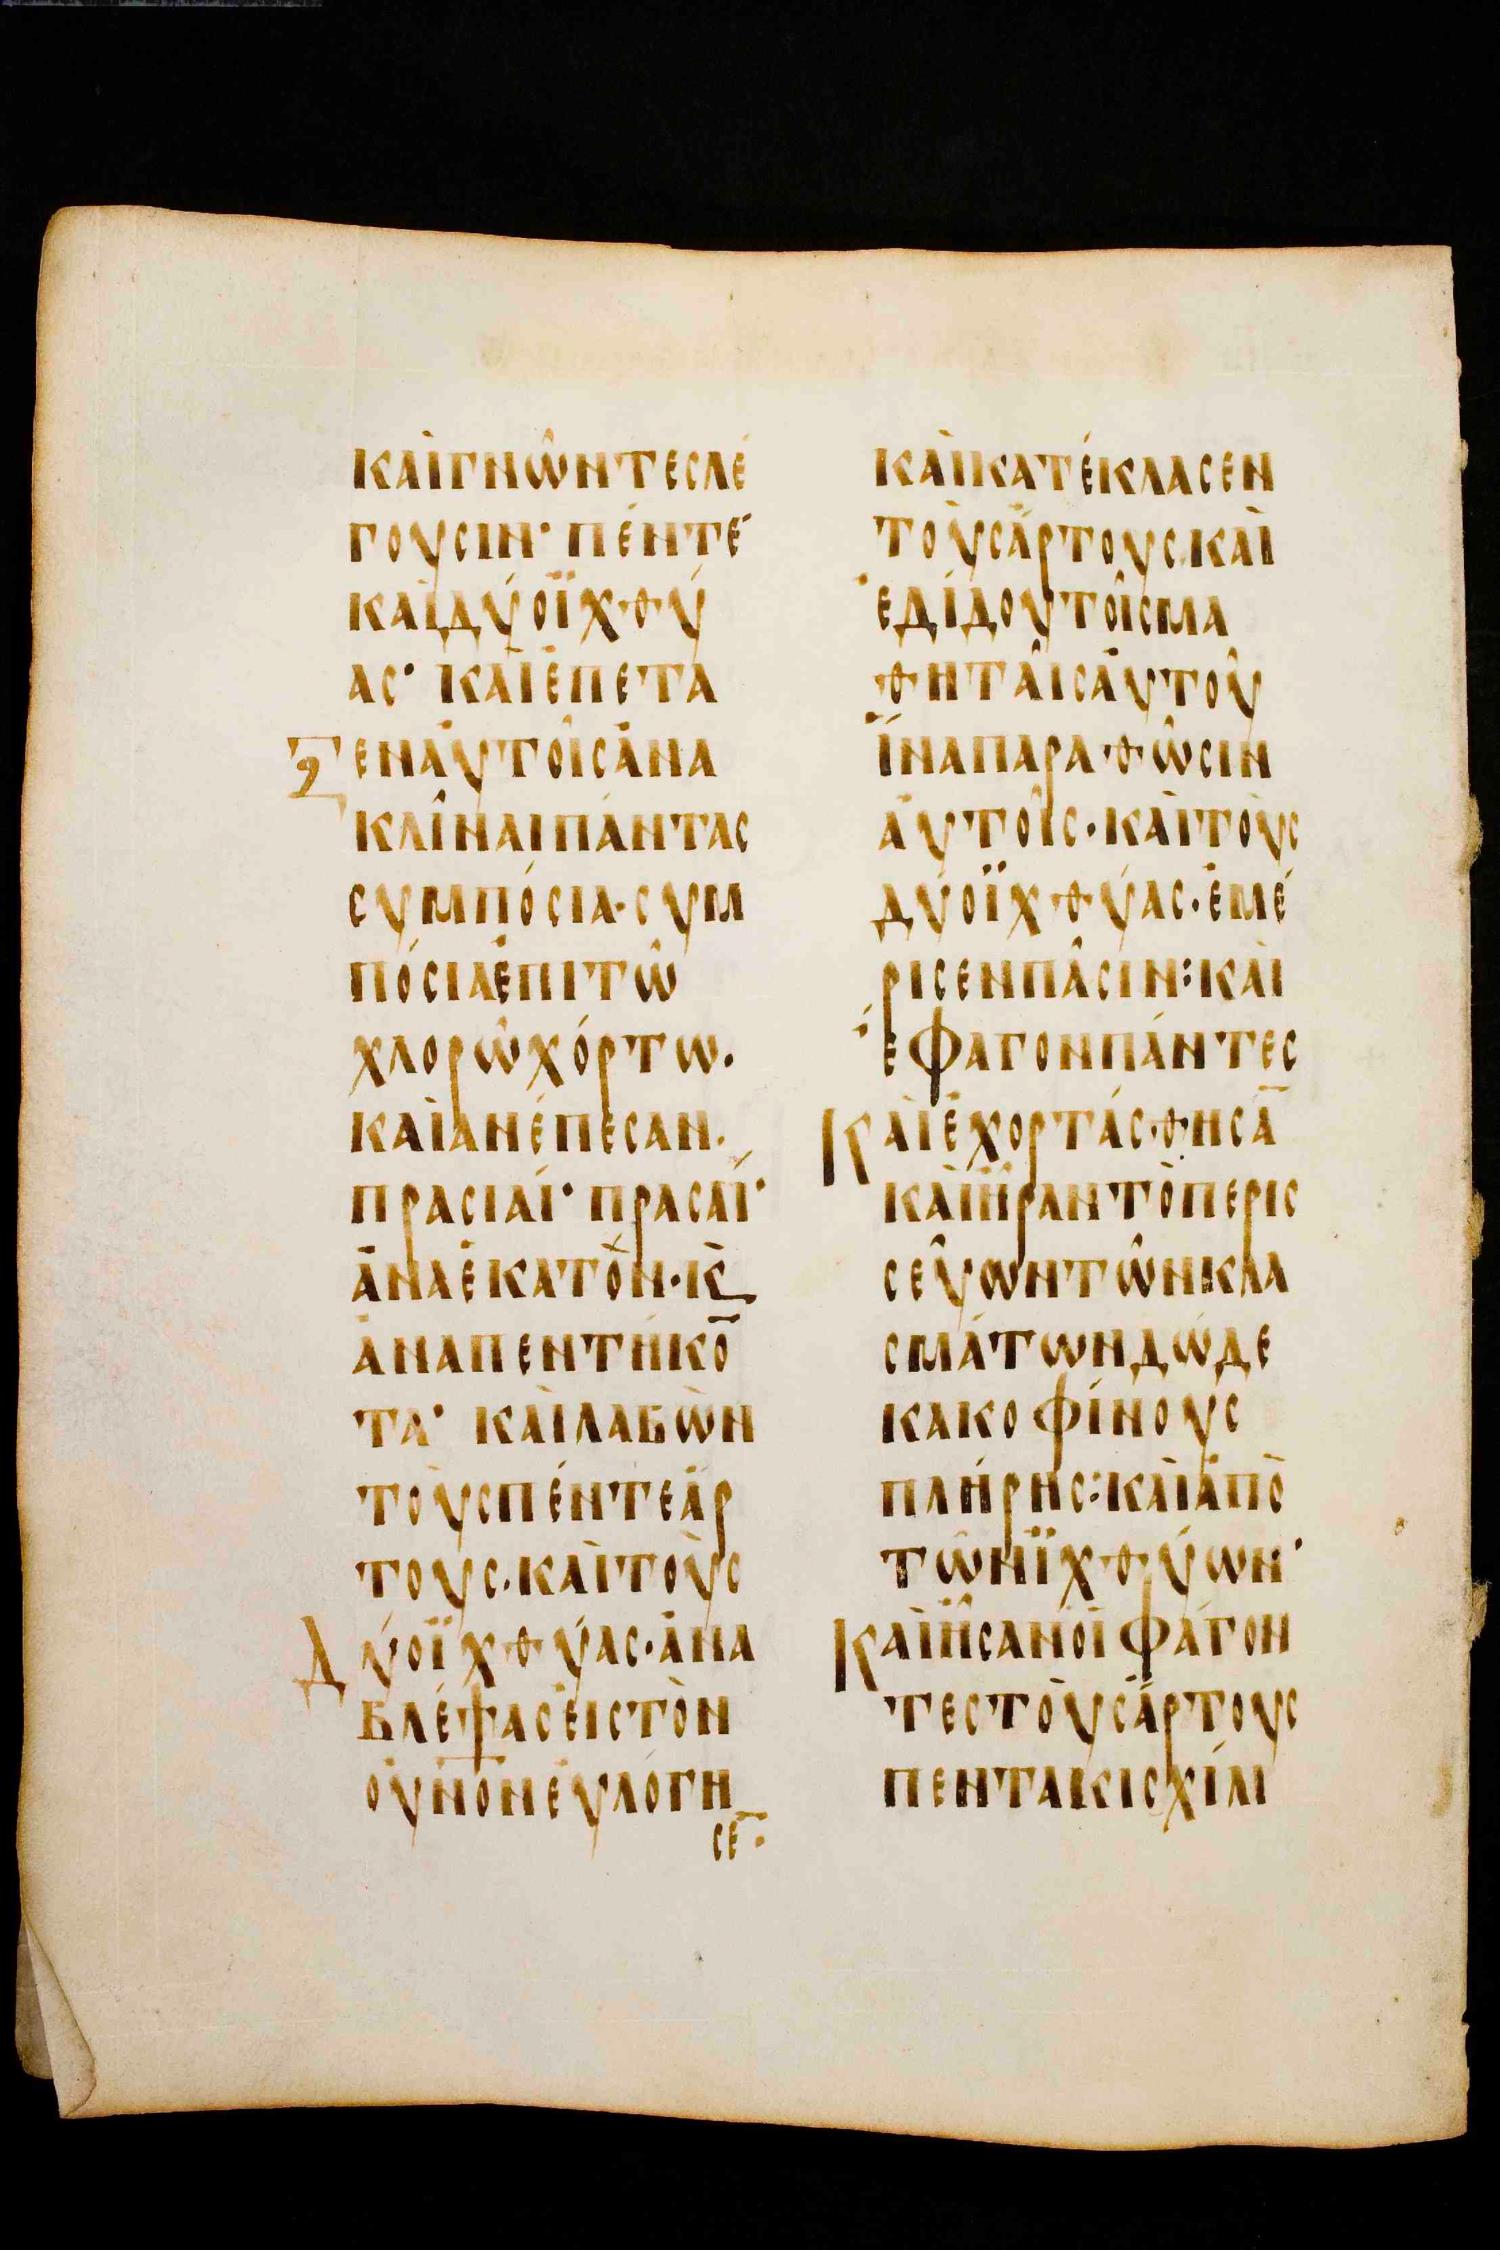 ΚΑῚΓΝΩ͂ΝΤΕΣΛΈ
ΓΟΥΣΙΝ· ΠΈΝΤΕ
ΚΑῚΔΎΟΪΧΘΎ
ΑΣ· ΚΑῚἘΠΕΤΑ
ΞΕΝΑὐΤΟῖΣἈΝΑ
ΚΛῖΝΑΙΠΆΝΤΑΣ
ΣΥΜΠΌΣΙΑ·ΣΥΜ
ΠΌΣΙΑἐΠΙΤῶ
ΧΛΟΡῶΧΌΡΤΩ.
ΚΑῚΑΝΈΠΕΣΑΝ.
ΠΡΑΣΙΑΊ· ΠΡΑΣΑΪ́·
ἈΝΑἑΚΑΤῸΝ·Κ̀
ἈΝΑΠΕΝΤΉΚΟ̅
ΤΑ· ΚΑῚΛΑΒῺΝ
ΤΟῪΣΠΈΝΤΕἌΡ
ΤΟΥΣ.ΚΑῚΤΟῪΣ
ΔΎΟΪΧΘΎΑΣ·ἈΝΑ
ΒΛΈΨΑΣΕἸΣΤῸΝ
ΟΥ̅Ν̅Ο̅ΝΕὐΛΌΓΗ
ΣΕ̅·
ΚΑῚΚΑΤΈΚΛΑΣΕΝ
ΤΟῪΣἌΡΤΟΥΣ.ΚΑῚ
ἘΔΊΔΟΥΤΟῖΣΜΑ
ΘΗΤΑῖΣΑὐΤΟῦ
ἽΝΑΠΑΡΑΘῶΣΙΝ
ΑὐΤΟῖΣ·ΚΑῚΤΟῪΣ
ΔΎΟΪΧΘΎΑΣ·ἘΜΈ
ΡΙΣΕΝΠᾶΣΙΝ:ΚΑῚ
ἜΦΑΓΟΝΠΆΝΤΕΣ
ΚΑῚἘΧΟΡΤΆΣΘΗΣΑ̅
ΚΑῚἮΡΑΝΤῸΠΕΡΙΣ
ΣΕῦΩΝΤῶΝΚΛΑ
ΣΜΆΤΩΝΔΏΔΕ
ΚΑΚΟΦΊΝΟΥΣ
ΠΛΉΡΗΣ:ΚΑῚἈΠῸ
ΤῶΝΪΧΘΎΩΝ·
ΚΑῚἮΣΑΝΟἹΦΑΓΌΝ
ΤΕΣΤΟῪΣἌΡΤΟΥΣ
ΠΕΝΤΑΚΙΣΧΊΛΙ